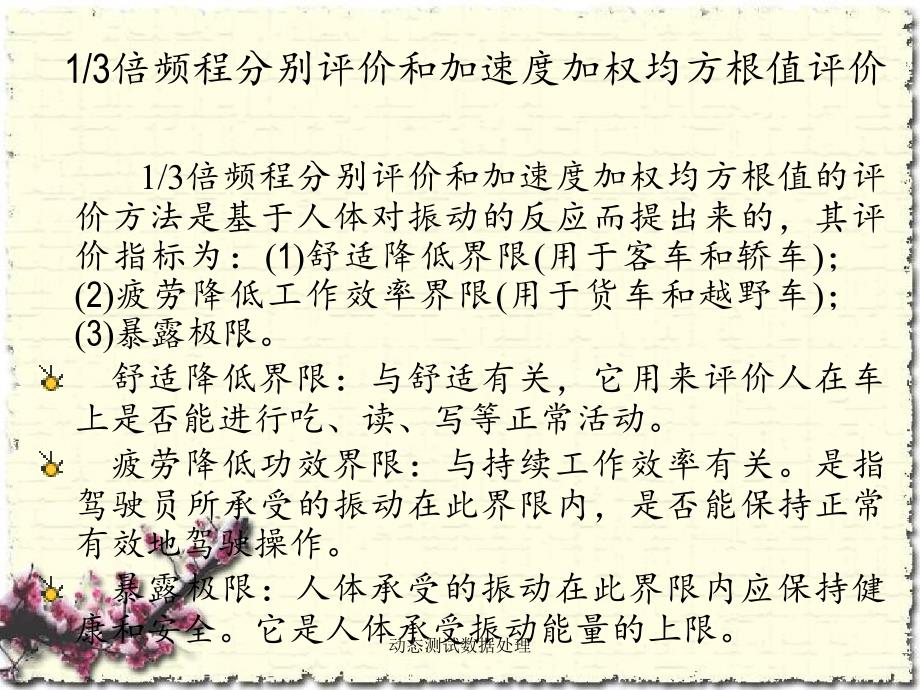 1/3倍频程分别评价和加速度加权均方根值评价
1/3倍频程分别评价和加速度加权均方根值的评
价方法是基于人体对振动的反应而提出来的，其评
价指标为：(1)舒适降低界限(用于客车和轿车)；
(2)疲劳降低工作效率界限(用于货车和越野车)；
(3)暴露极限。
舒适降低界限：与舒适有关，它用来评价人在车
上是否能进行吃、读、写等正常活动。
疲劳降低功效界限：与持续工作效率有关。是指
驾驶员所承受的振动在此界限内，是否能保持正常
有效地驾驶操作。
暴露极限：人体承受的振动在此界限内应保持健
康和安全。它是人体承受振动能量的上限。
动态测试数据处理